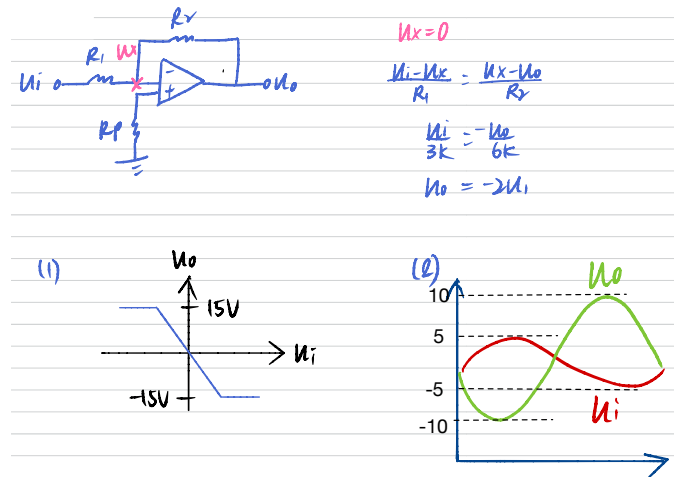 R2
R1 Ux
Ui
Uo
Rp
Ux=0
Ui-Ux/R1 = Ux-Uo/R2
Ui/3K = -Uo/6K
Uo = -2Ui
(1)
Uo
15V
Ui
-15V
(2)
Uo
10
5
-5
Ui
-10